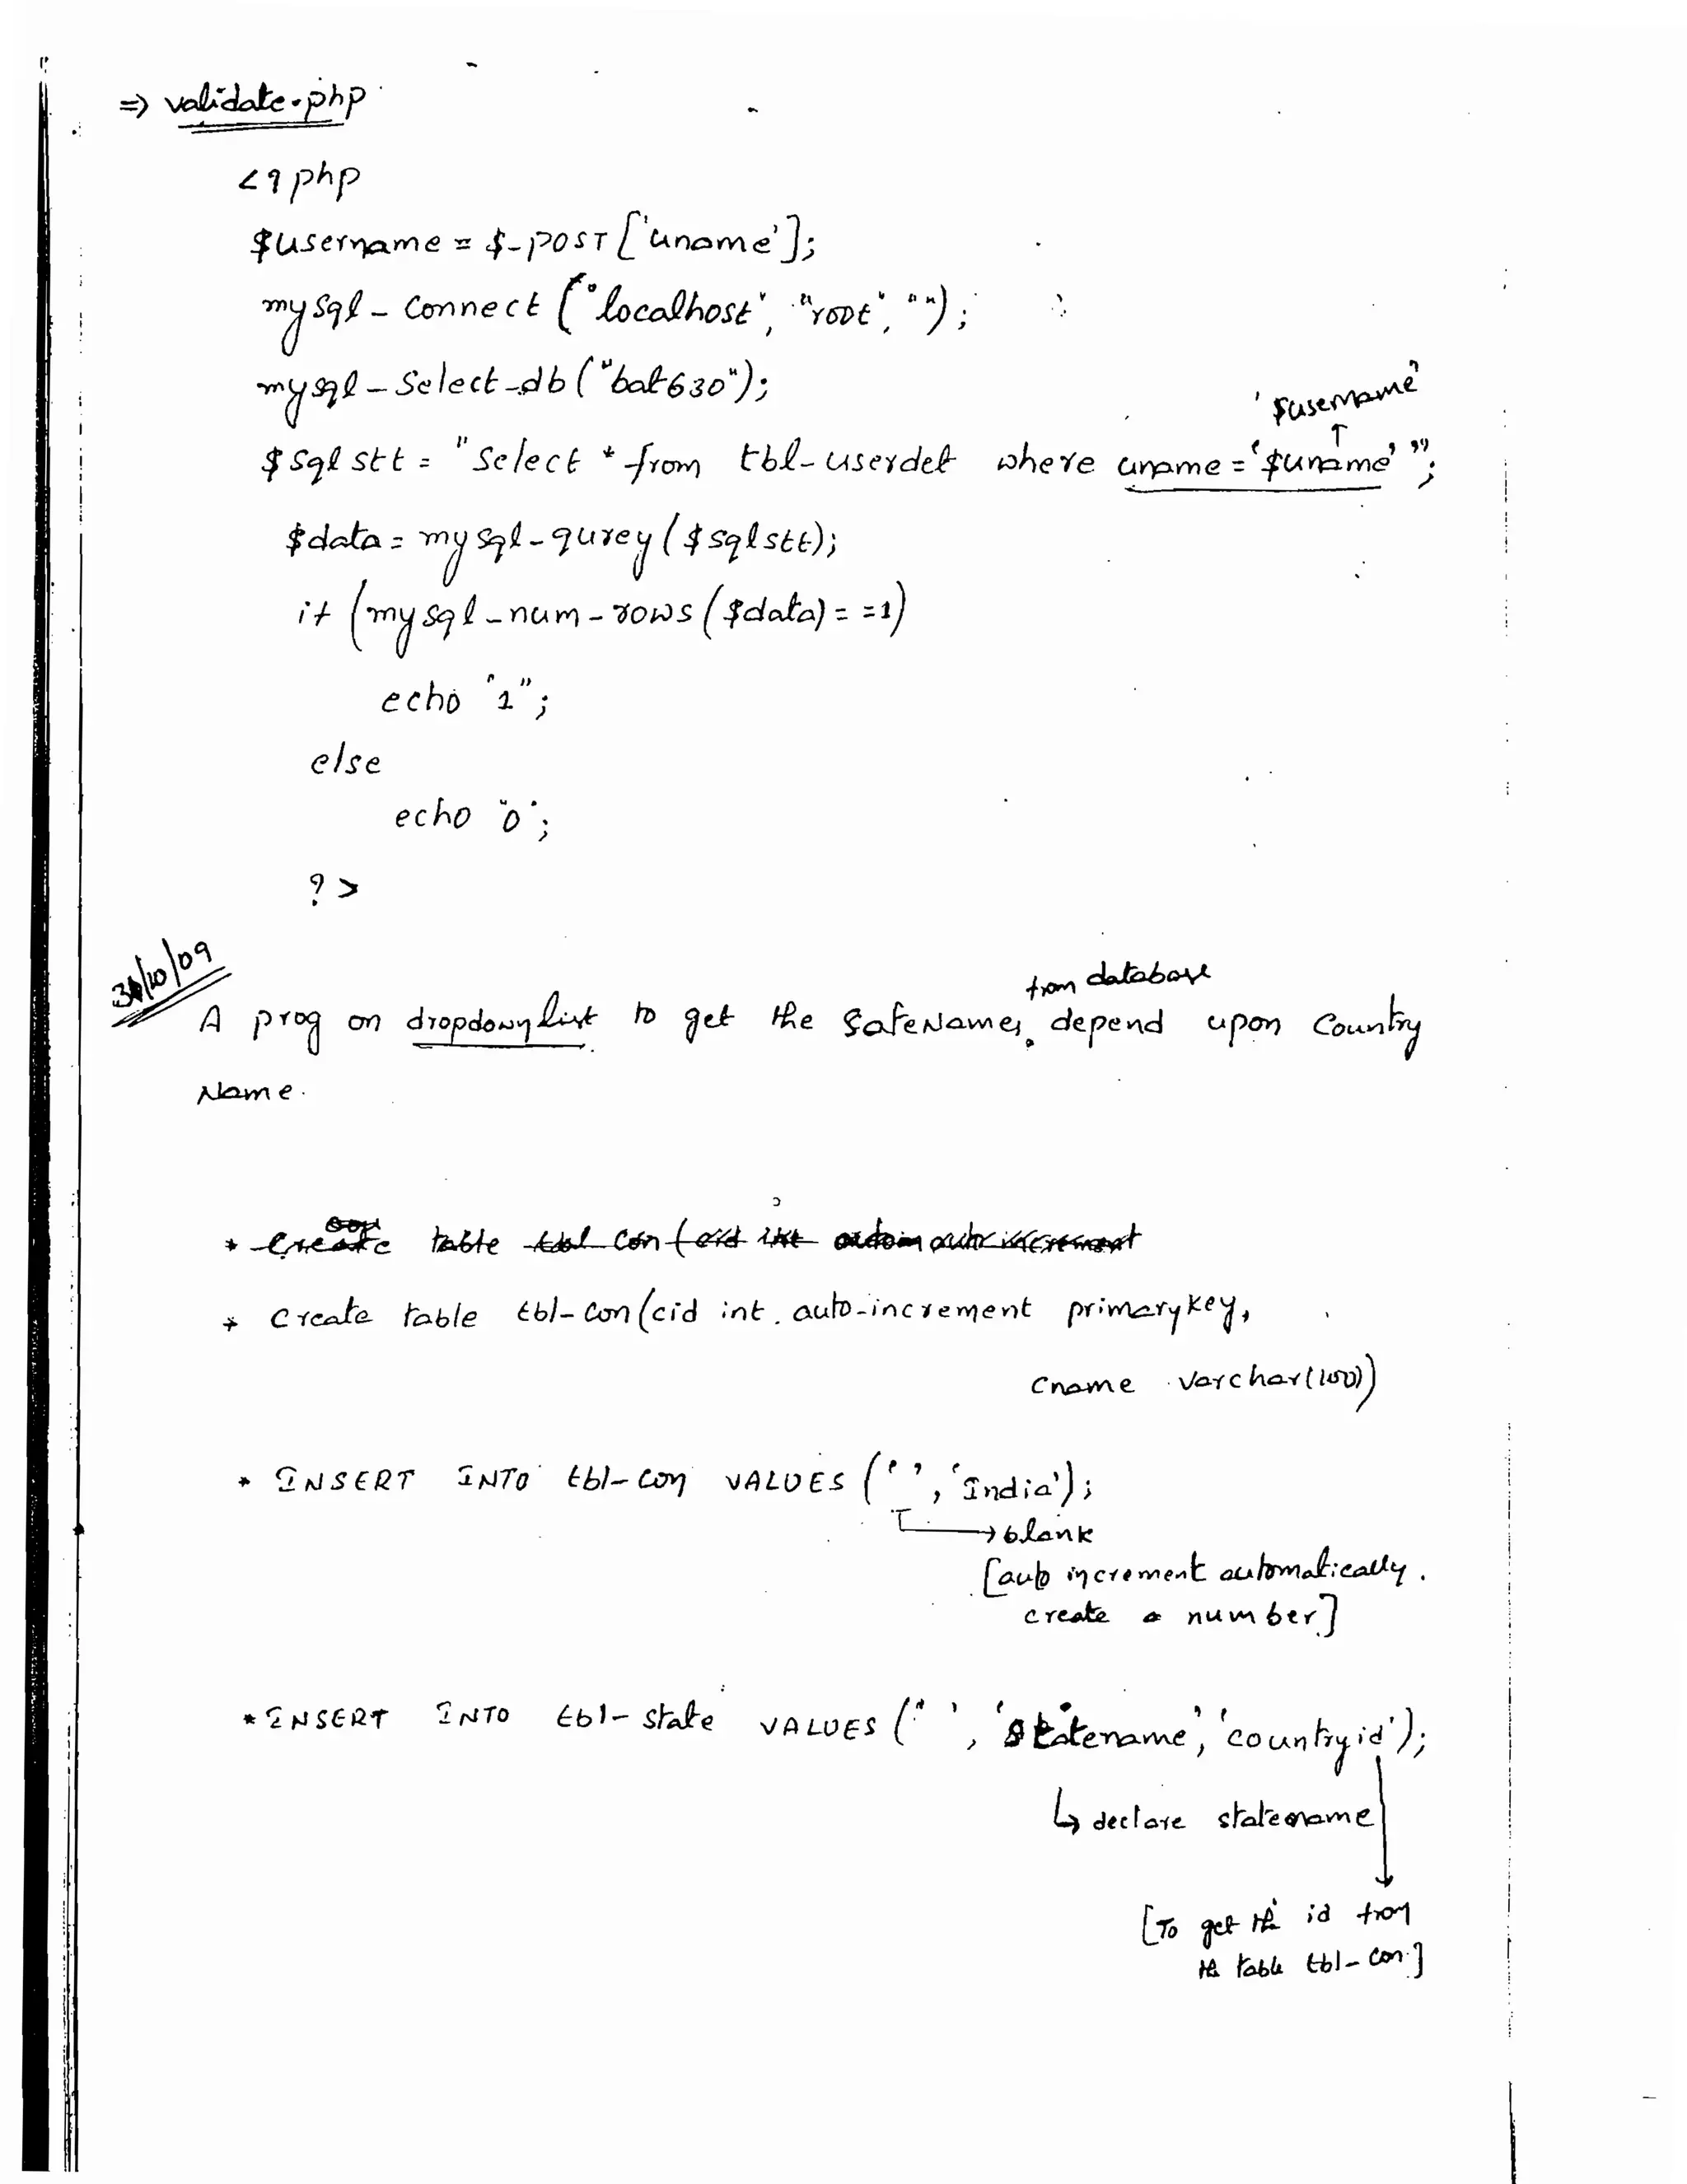 => validate.php
<?php
$username = $_POST['uname'];
mysql_connect("localhost", "root", "");
mysql_select_db("bat630");
'$username'
↑
$sqlstt = "Select * from tbl_userdet where uname='$uname'";
$data = mysql_qurey($sqlstt);
if (mysql_num_rows($data)==1)
echo "1";
else
echo "0";
?>
/10/09
from database
A prog on dropdown list to get the Names depend upon Country
Name.
* table
* Create table tbl_con(cid int auto_increment primary key,
cname varchar(100))
* INSERT INTO tbl_con VALUES ('', 'India');
→ blank
[auto increment automatically.
create a number]
* INSERT INTO tbl_state VALUES ('', 'statename', 'countryid');
↳ declare statename
[To get the id from
the table tbl_con.]